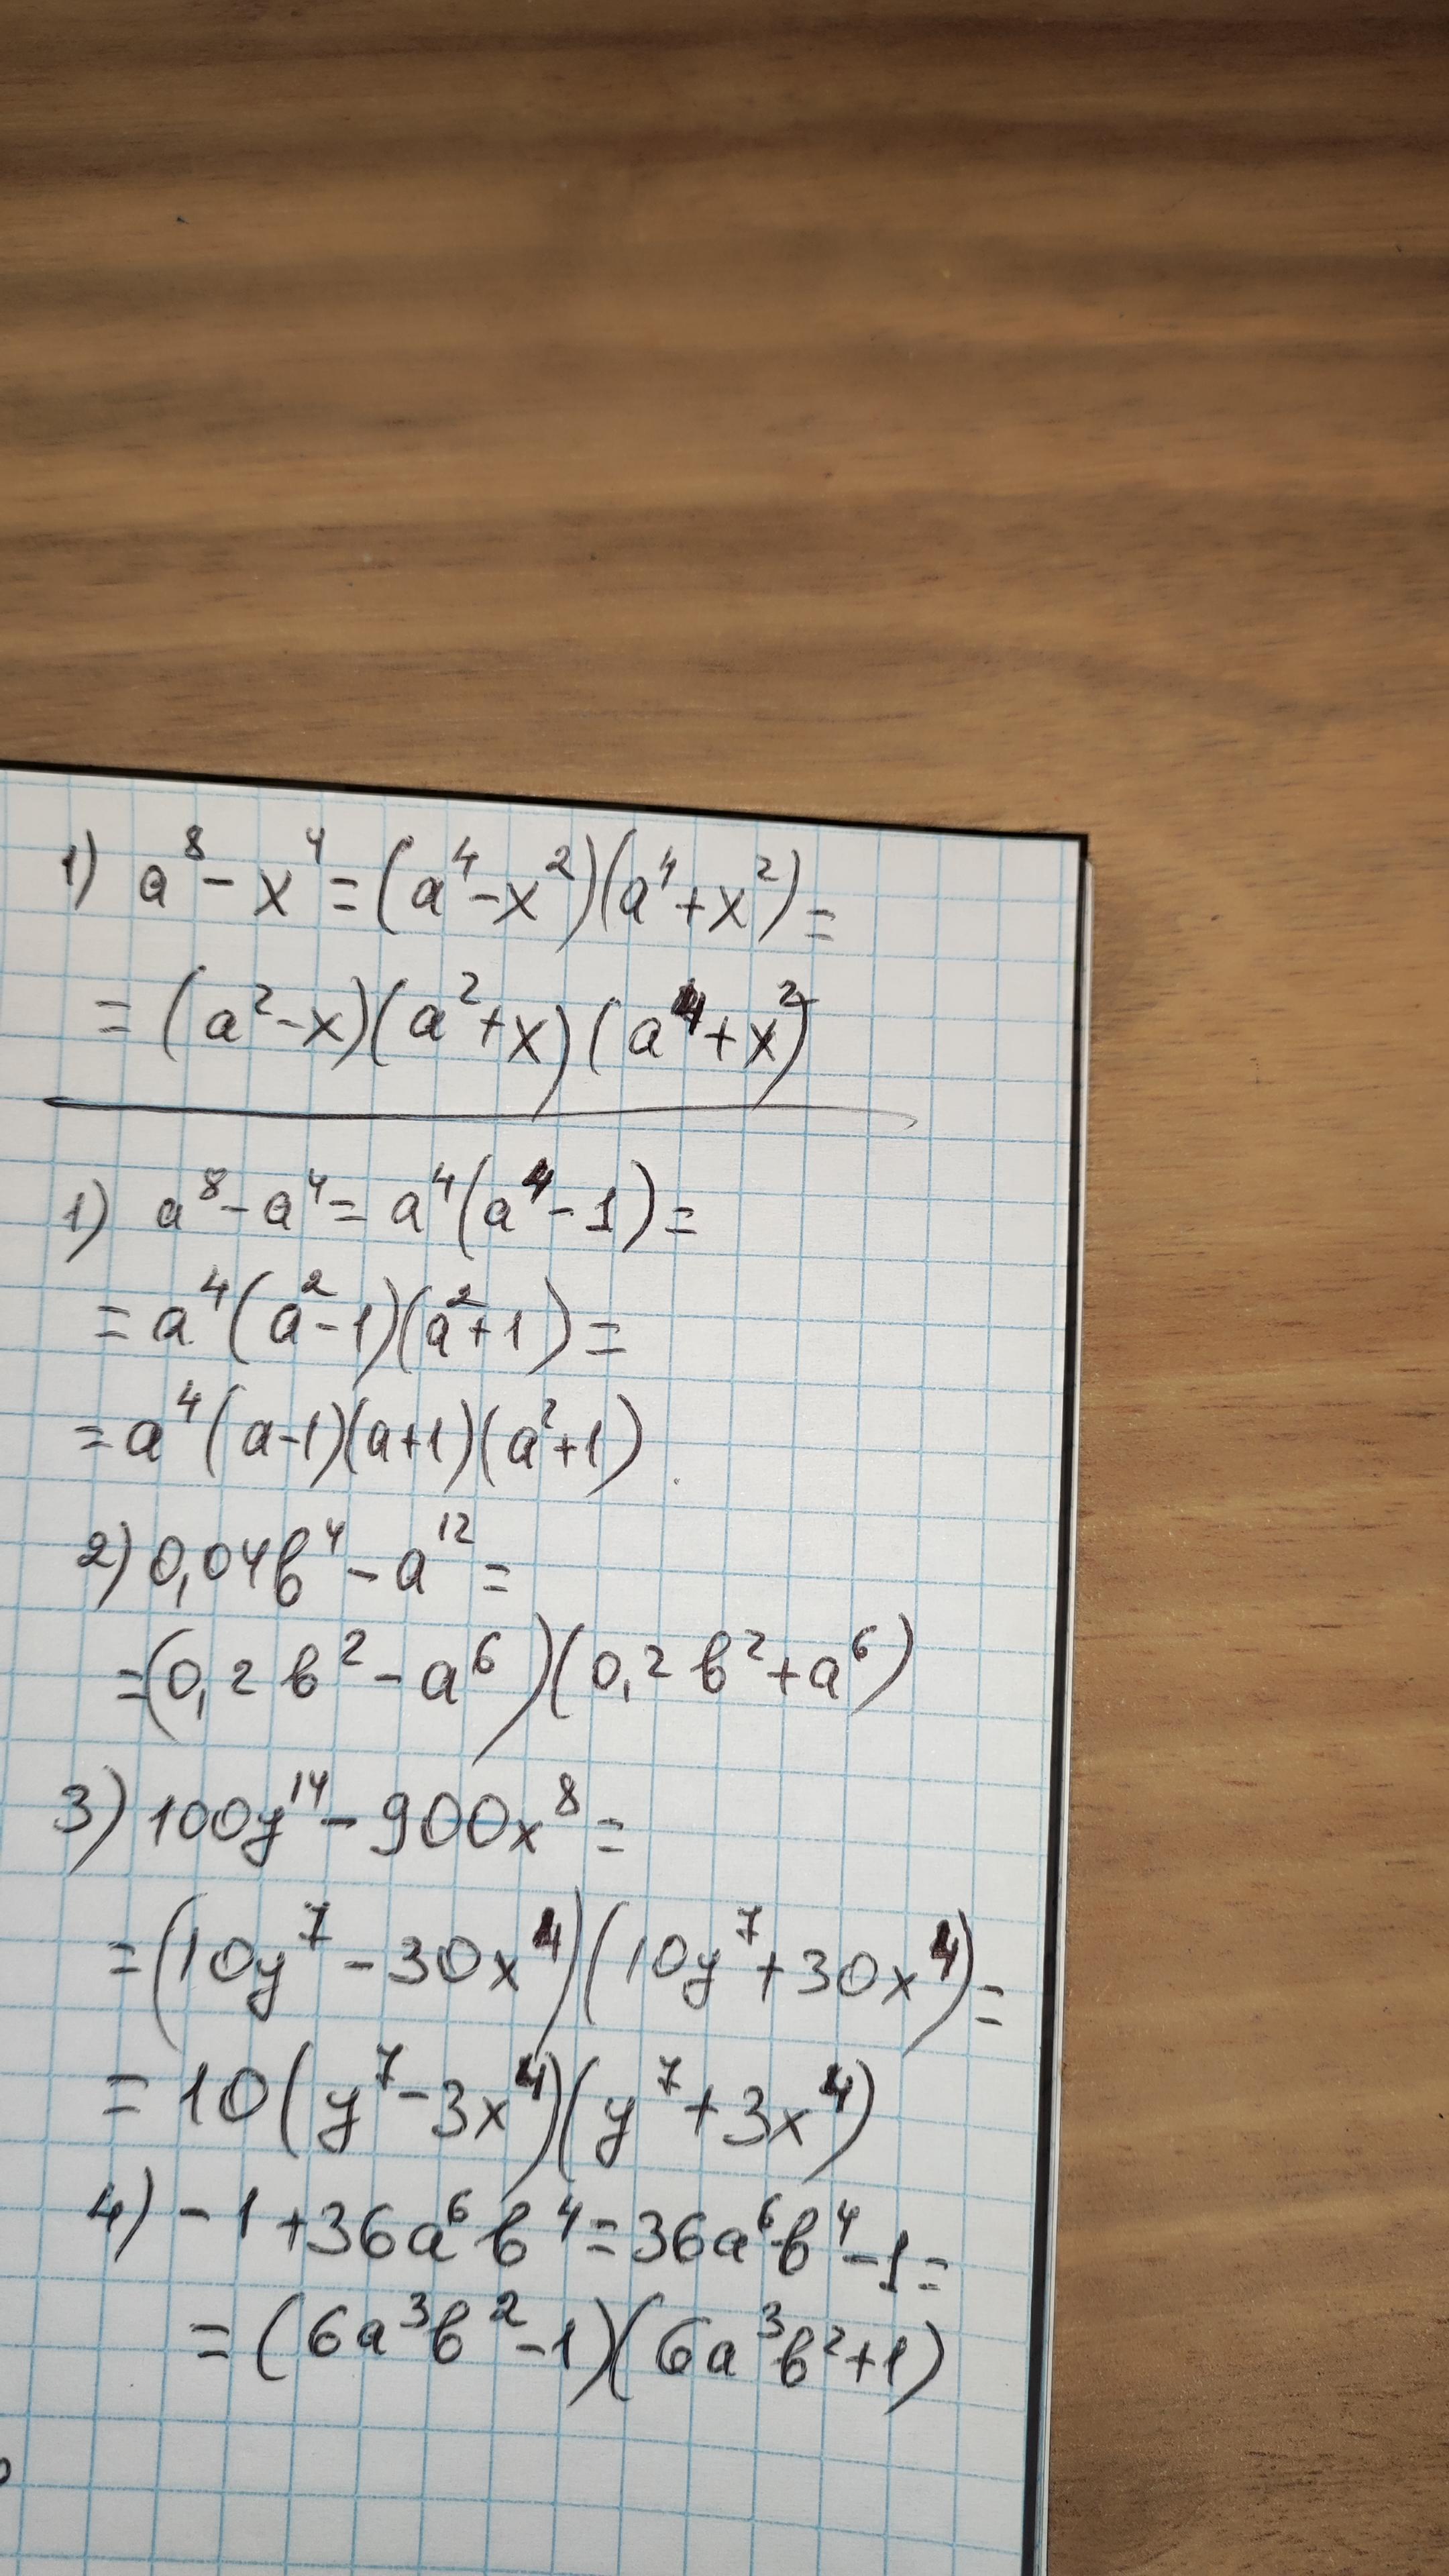 1) a⁸ - x⁴ = (a⁴ - x²)(a⁴ + x²) =
= (a² - x)(a² + x)(a⁴ + x²)
1) a⁸ - a⁴ = a⁴(a⁴ - 1) =
= a⁴(a² - 1)(a² + 1) =
= a⁴(a - 1)(a + 1)(a² + 1).
2) 0,04в⁴ - a¹² =
= (0,2в² - a⁶)(0,2в² + a⁶)
3) 100y¹⁴ - 900x⁸ =
= (10y⁷ - 30x⁴)(10y⁷ + 30x⁴) =
= 10(y⁷ - 3x⁴)(y⁷ + 3x⁴)
4) - 1 + 36a⁶в⁴ = 36a⁶в⁴ - 1 =
= (6a³в² - 1)(6a³в² + 1)